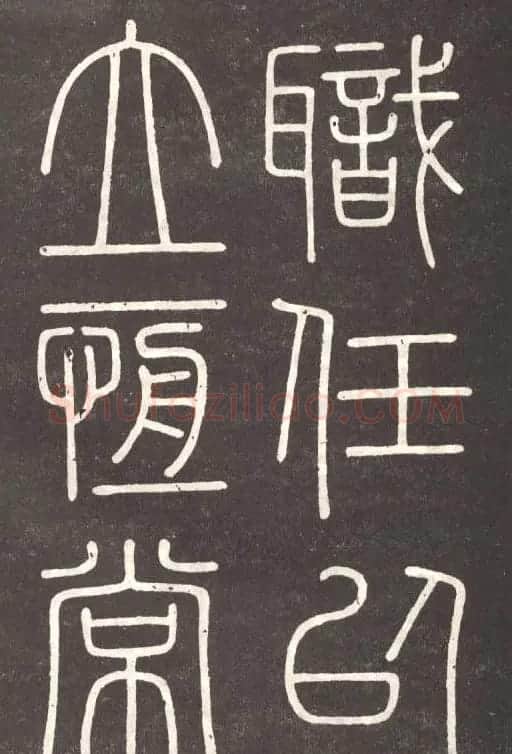 職任以
立恆常
Shufaziliao.COM